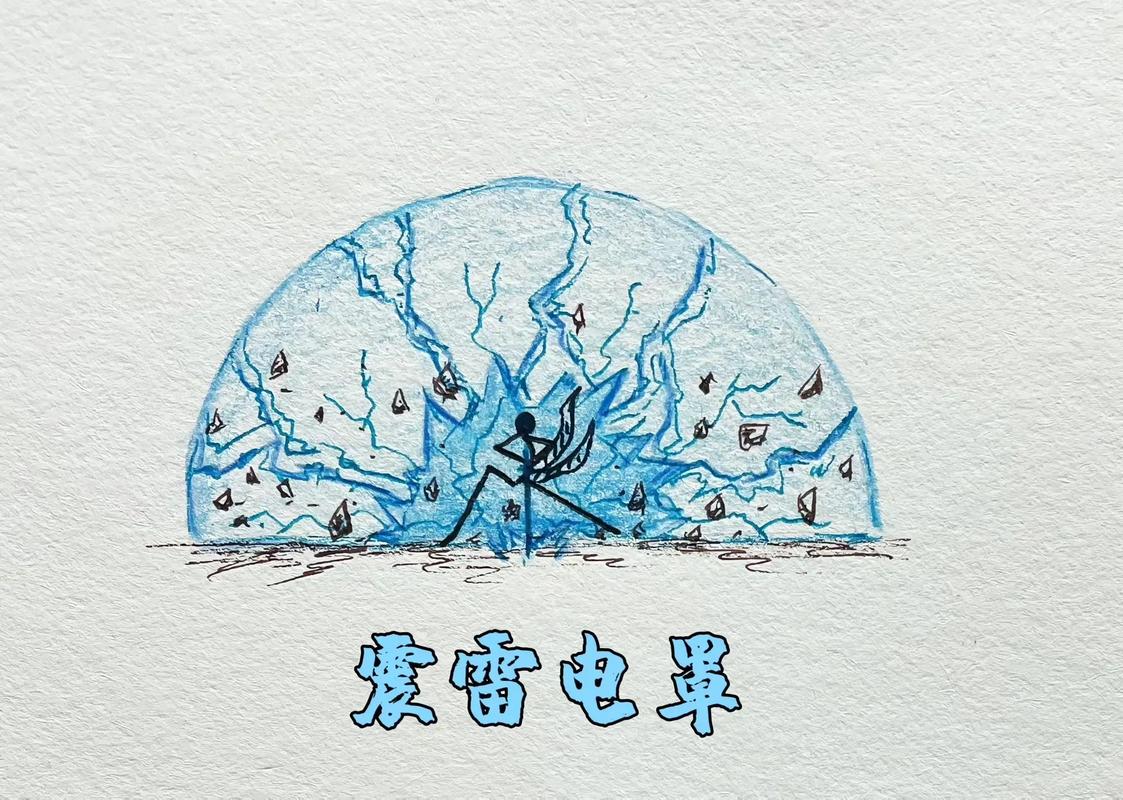 震雷电罩